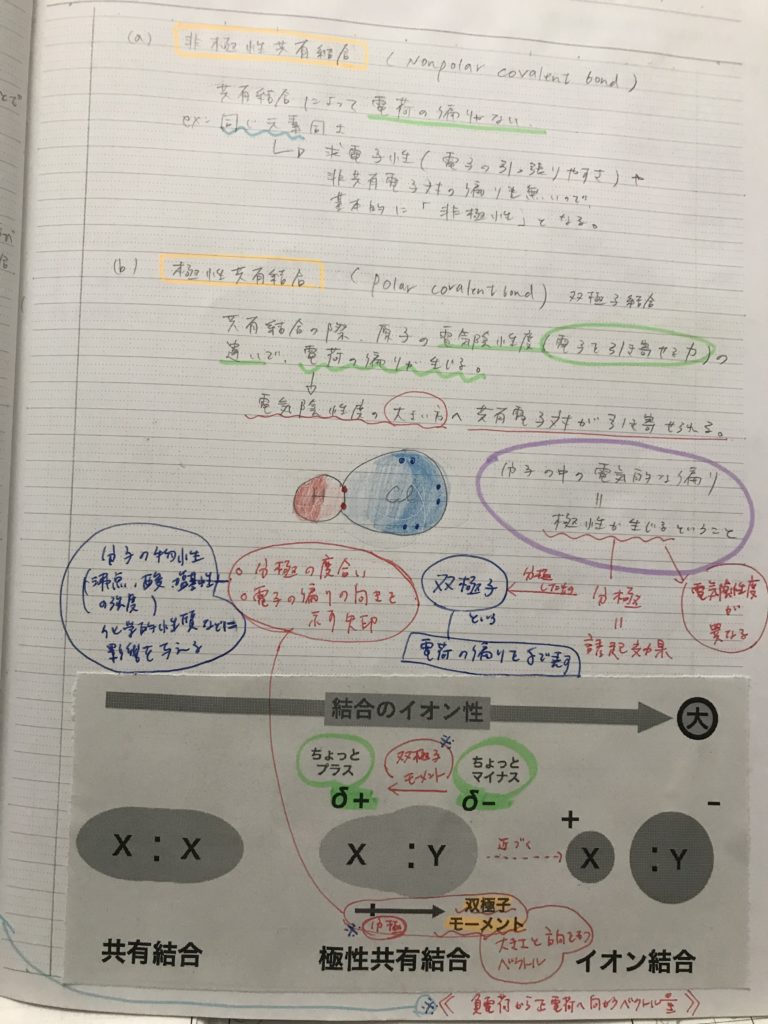 (a) 非極性共有結合 (Nonpolar covalent bond)
共有結合によって電荷の偏りがない.
ex: 同じ元素同士
求電子性(電子の引っ張りやすさ)や
非共有電子対の偏りも無いので、
基本的に「非極性」となる。
(b) 極性共有結合 (polar covalent bond) 双極子結合
共有結合の際、原子の電気陰性度(電子を引き寄せる力)の
違いで、電荷の偏りが生じる。
電気陰性度の大きい方へ共有電子対が引き寄せられる。
H Cl
分子の中の電気的な偏り
=
極性が生じるということ
分子の物性
(沸点、酸・塩基性
の強度)
化学的性質などに
影響を与える
○分極の度合い
○電子の偏りの向きを
示す矢印
双極子
という
電荷の偏りをδで表す
分極したもの
分極
=
誘起効果
電気陰性度
が
異なる
結合のイオン性 大
ちょっと
プラス
δ+
※
双極子
モーメント
ちょっと
マイナス
δ-
X : X
X : Y
近づく
+
X
-
: Y
双極子
モーメント
※ 分極
大きさと方向をもつ
ベクトル
共有結合
極性共有結合
イオン結合
※《 負電荷から正電荷へ向かうベクトル量